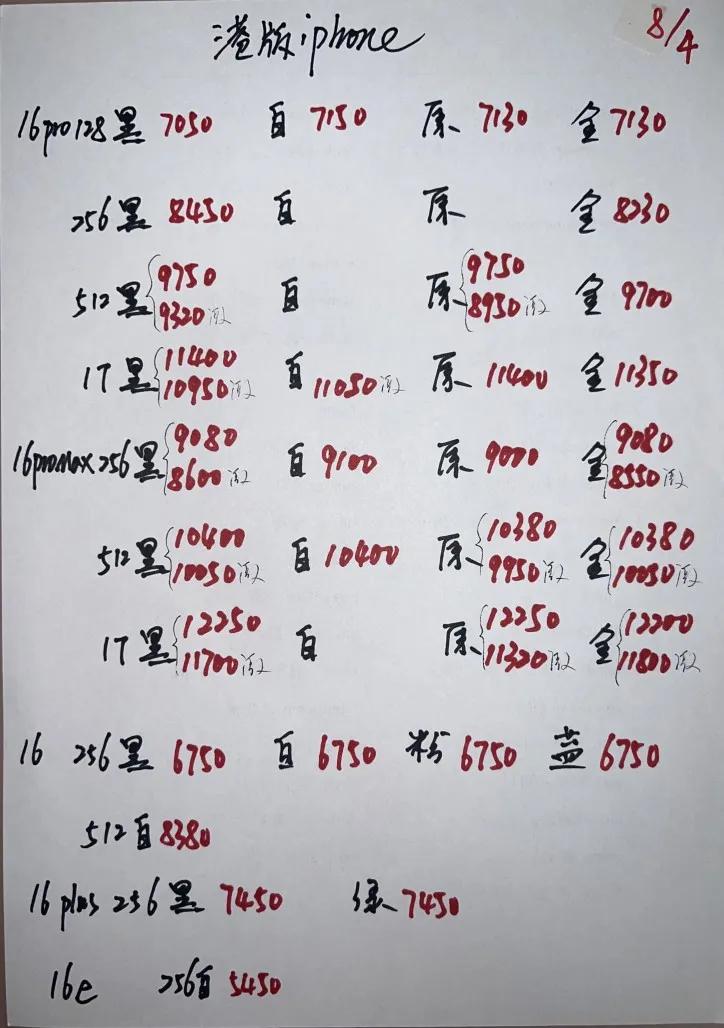 港版iphone 8/4
16pro128黑 7050 白 7150 原 7130 金 7130
256黑 8450 白 原 金 8230
512黑 9750 白 原 9750 金 9700
9320激 8950激
1T黑 11400 白 11050激 原 11400 金 11350
10950激
16promax256黑 9080 白 9100 原 9000 金 9080
8600激 8550激
512黑 10400 白 10400 原 10380 金 10380
10050激 9950激 10050激
1T黑 12250 白 原 12250 金 12200
11700激 11320激 11800激
16 256黑 6750 白 6750 粉 6750 蓝 6750
512白 8380
16plus 256黑 7450 绿 7450
16e 256白 5450